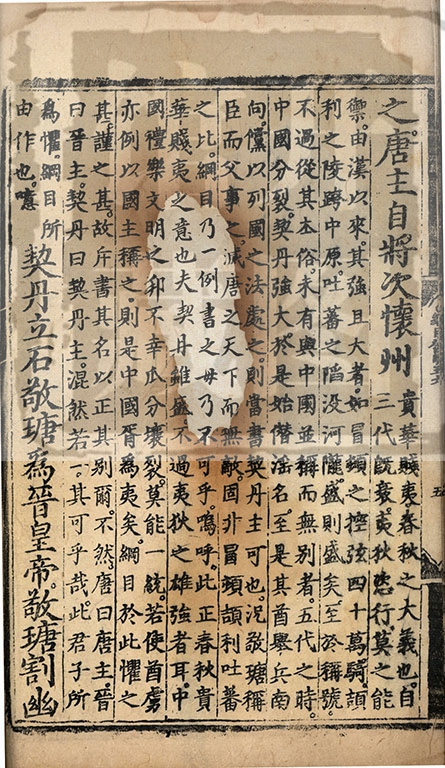 之唐主自將次懷州
貴華賤夷春秋之大義也自
三代旣衰夷狄恣行莫之能
禦由漢以來其強且大者如冒頓之控弦四十萬騎頡
利之陵跨中原吐蕃之陷没河隴盛則盛矣至於稱號
不過從其本俗未有與中國並稱而無別者五代之時
中國分裂契丹強大於是始僭滛名至是其酋舉兵南
向儻以列國之法處之則當書契丹主可也況敬瑭稱
臣而父事之滅唐之天下而無敵固非冒頓頡利吐蕃
之比綱目乃一例書之毋乃不可乎嗚呼此正春秋貴
華賤夷之意也夫契丹雖盛不過夷狄之雄強者耳中
國禮樂文明之邦不幸瓜分壞裂莫能一統若使酋虜
亦例以國主稱之則是中國胥爲夷矣綱目於此懼之
甚謹之甚故斥書其名以正其別爾不然唐曰唐主晉
曰晉主契丹曰契丹主混然若一其可乎哉此君子所
爲懼綱目所
由作也噫
契丹立石敬瑭爲晉皇帝敬瑭割幽